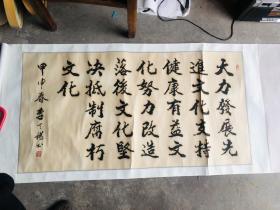 大力發展先
進文化支持
健康有益文
化努力改造
落後文化堅
决抵制腐朽
文化
甲申春